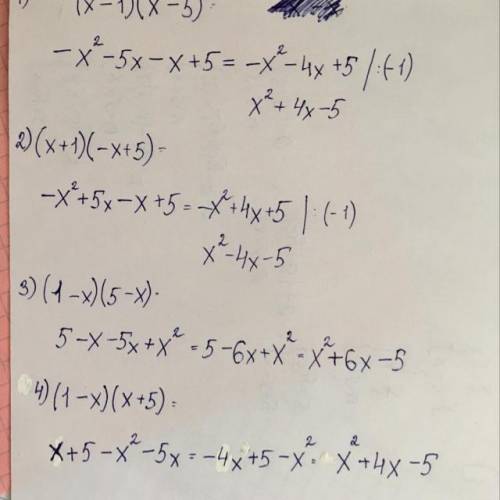 1) (x-1)(x-5)=
-x²-5x-x+5 = -x²-4x+5 /:(-1)
x²+4x-5
2) (x+1)(-x+5)=
-x²+5x-x+5 = -x²+4x+5 | :(-1)
x²-4x-5
3) (1-x)(5-x)=
5-x-5x+x² = 5-6x+x² = x²+6x-5
4) (1-x)(x+5)=
x+5-x²-5x = -4x+5-x² = x²+4x-5